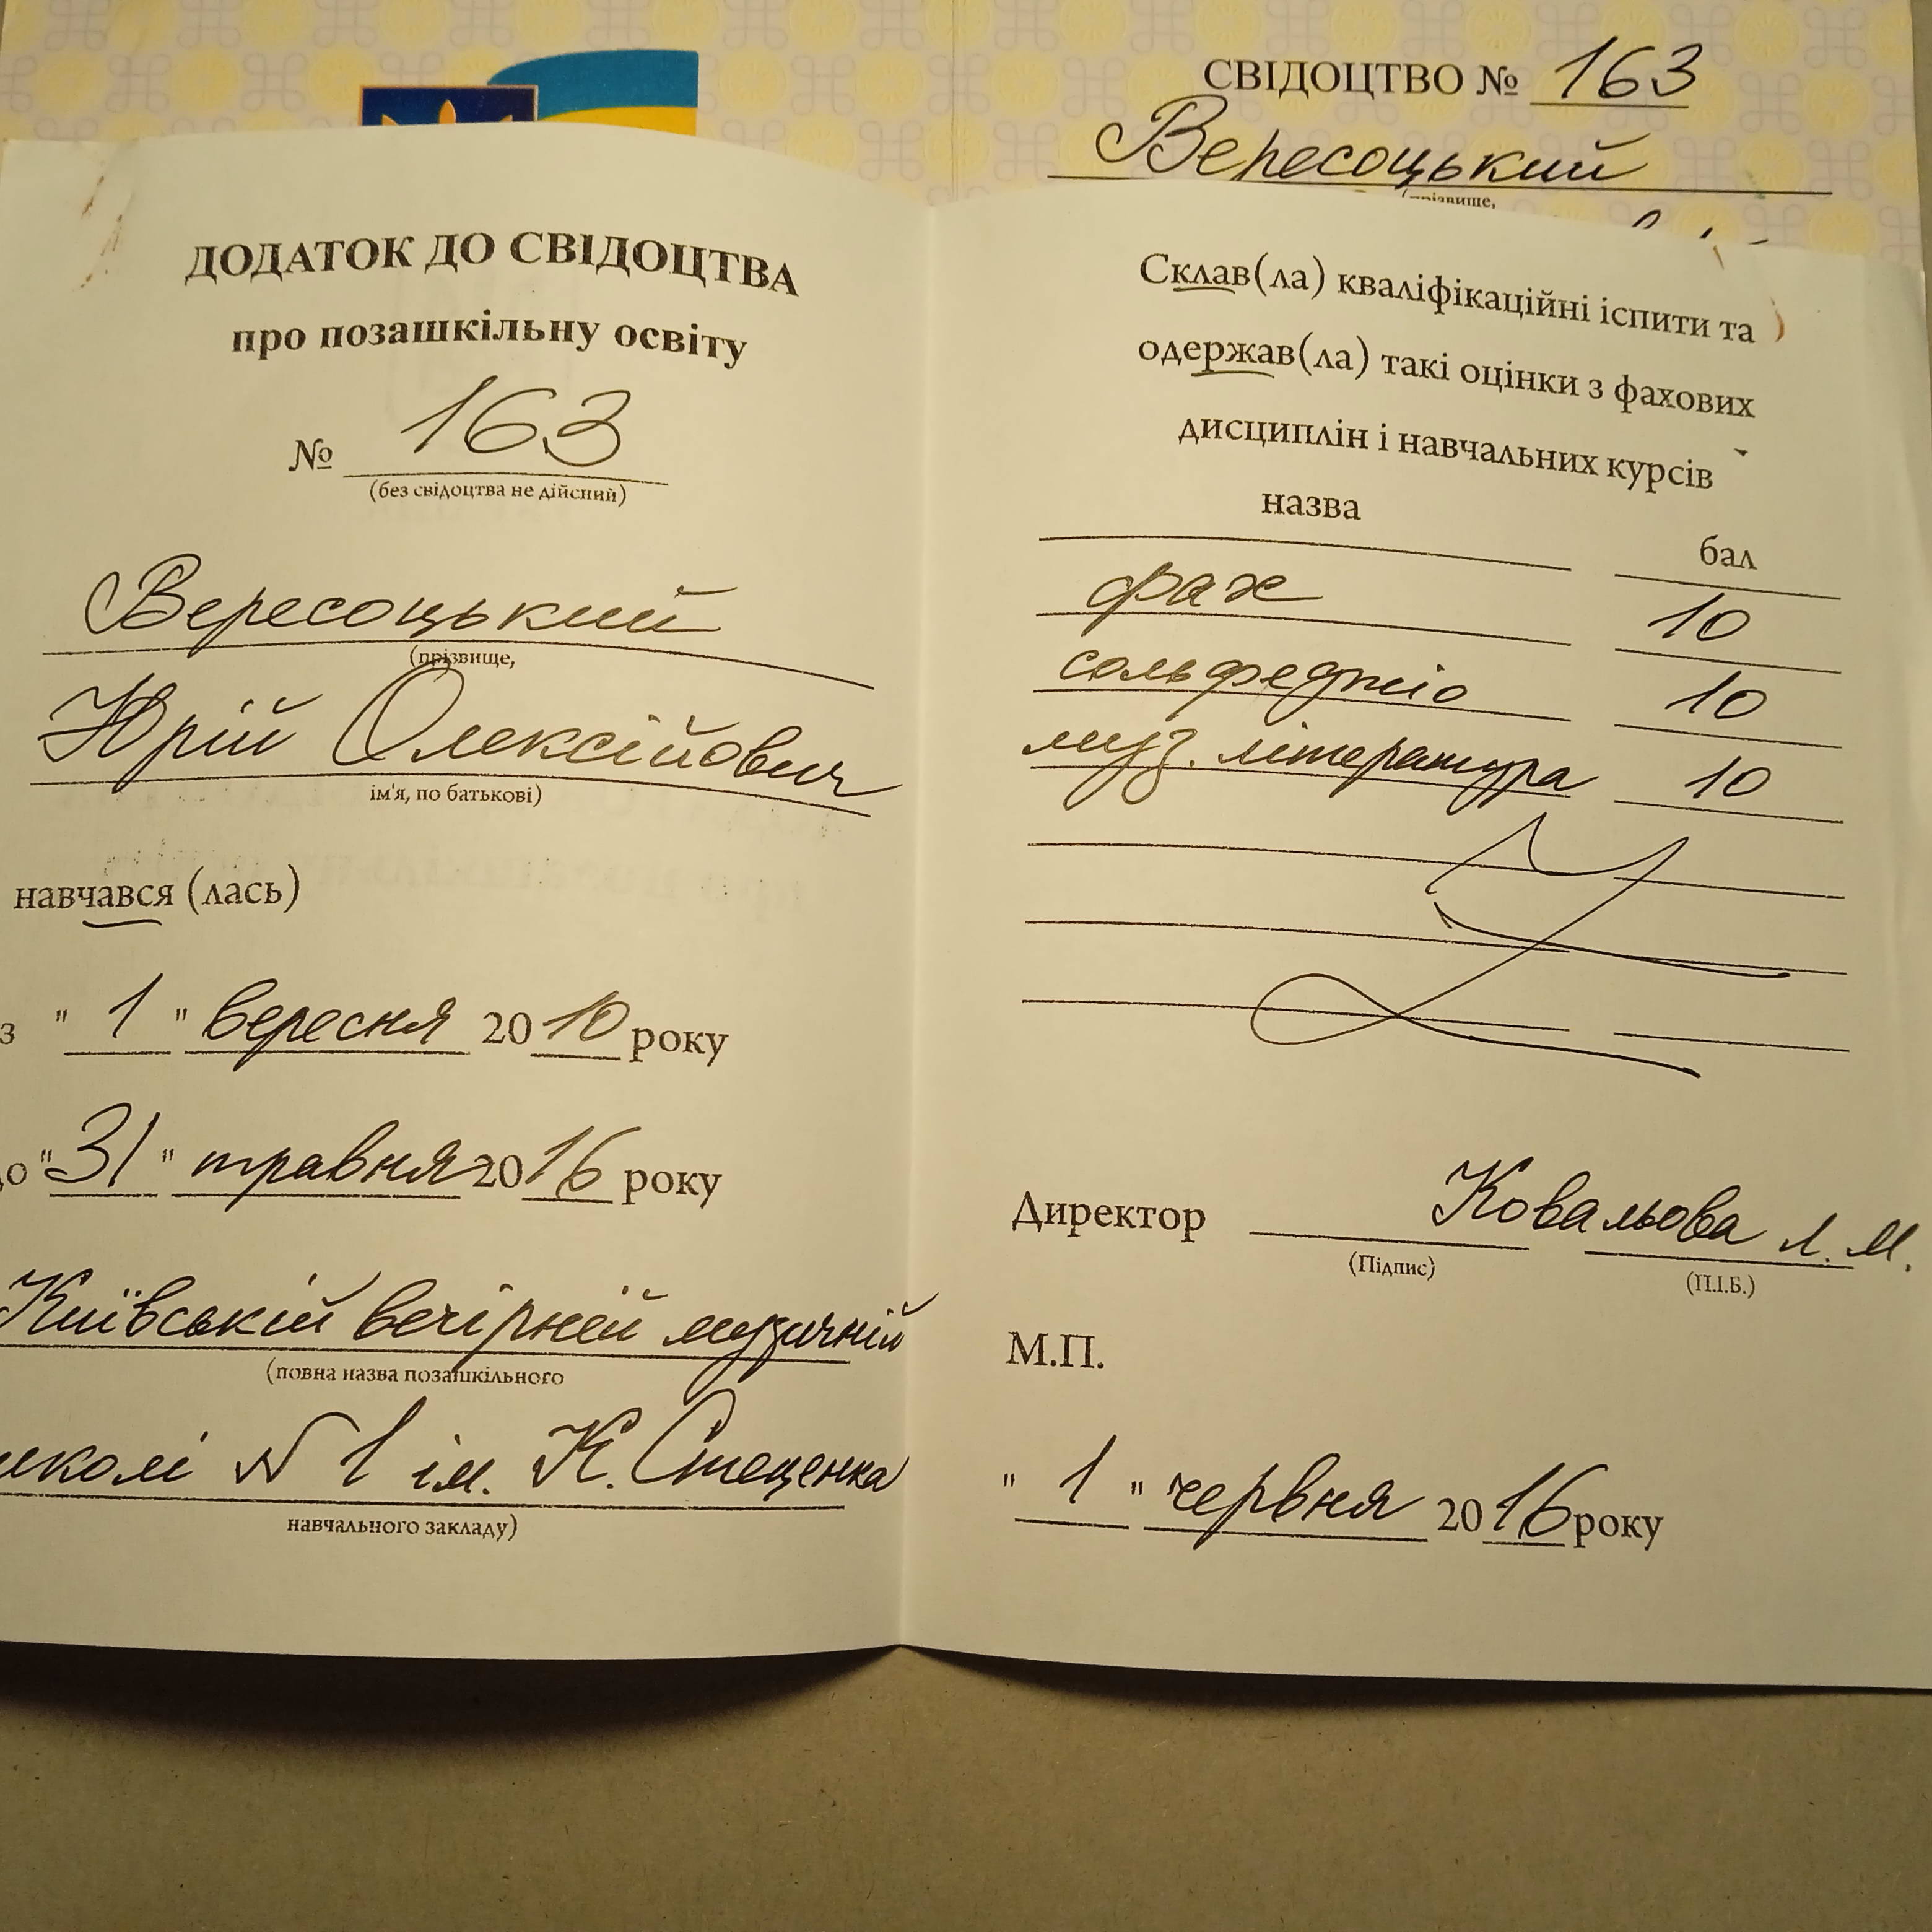 СВІДОЦТВО № 163
Вересоцький
(прізвище,
ДОДАТОК ДО СВІДОЦТВА
про позашкільну освіту
№ 163
(без свідоцтва не дійсний)
Вересоцький
(прізвище,
Юрій Олексійович
ім'я, по батькові)
навчався (лась)
з " 1 " вересня 2010 року
до "31" травня 2016 року
Київській вечірній музичній
(повна назва позашкільного
школі №1 ім. К. Стеценка
навчального закладу)
Склав(ла) кваліфікаційні іспити та
одержав(ла) такі оцінки з фахових
дисциплін і навчальних курсів
назва бал
фах 10
сольфеджіо 10
муз. література 10
Директор Ковальова Л.М.
(Підпис) (П.І.Б.)
М.П.
" 1 " червня 2016 року